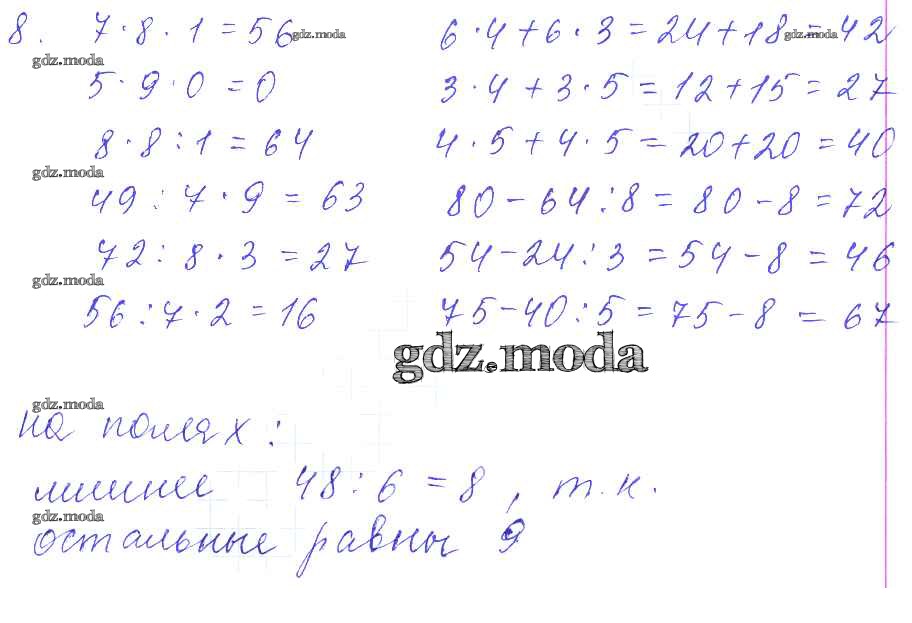 8. 7·8·1=56 6·4+6·3=24+18=42
gdz.moda gdz.moda
gdz.moda
5·9·0=0 3·4+3·5=12+15=27
8·8:1=64 4·5+4·5=20+20=40
gdz.moda
49:7·9=63 80-64:8=80-8=72
72:8·3=27 54-24:3=54-8=46
gdz.moda
56:7·2=16 75-40:5=75-8=67
gdz.moda
gdz.moda
на полях:
лишнее 48:6=8, т.к.
gdz.moda
остальные равны 9